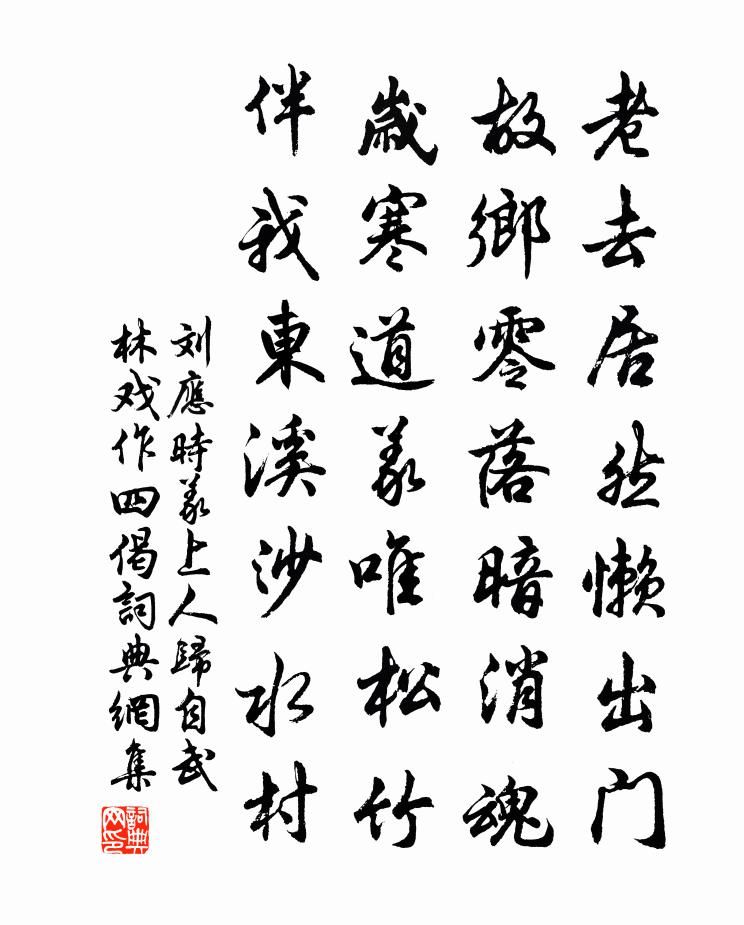 老去居然懒出门
故鄉零落暗消魂
歲寒道義唯松竹
伴我東溪沙水村
刘應時義上人歸自武
林戏作四偈詞典網集
詞典
网印